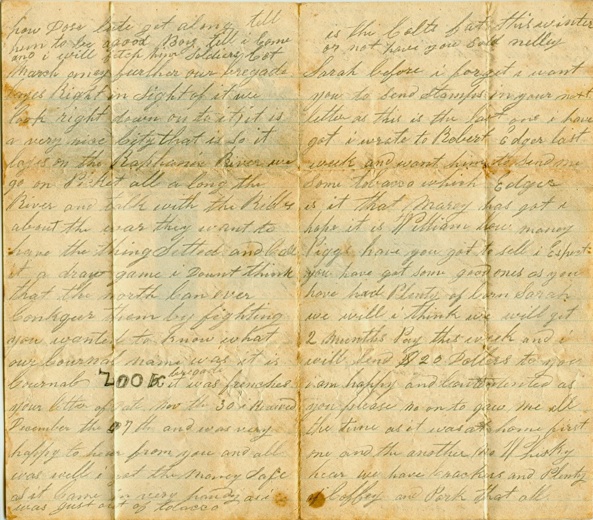 how Dose late get along tell
him to be a good Boy till i Come
and i will fetch him Soldiers Cot
March oney further our bregade
layes Right in Sight of it we
look right down on to it it is
a very nice City that is so it
layes on the Raphanac River we
go on Picket all along the
River and talk with the Rebbs
about the war they want to
have the thing Setted and Call
it a draw game i dount think
that the north Can ever
Conkquer them by fighting
you wanted to know what
our Cournal name was it is
Cournal ZOOK bregade it was frenches
your letter of date Nov the 30 i Recived
December the 7 th and was very
happy to hear from you and all
was well i got the money Safe
as it Came in very handy as i
was just out of tobacco
is the Colts fat this winter
or not have you Sold nelly
Sarah before i forget i want
you to send Stamps in your next
letter as this is the last one i have
got i wrote to Robert Edger last
week and want him to send me
Some tobacco which Edger
is it that Marey has got i
hope it is William how maney
Piggs have you got to sell i Expect
you have got some good ones as you
have had Plenty of Corn Sarah
we will i think we will get
2 months Pay this week and i
will Send $20 Dollers to you
i am happy and Contented as
you please no on to gaw me all
the time as it was at home first
one and the another no Whisky
hear we have Crackers and Plenty
of Coffey and Pork that all